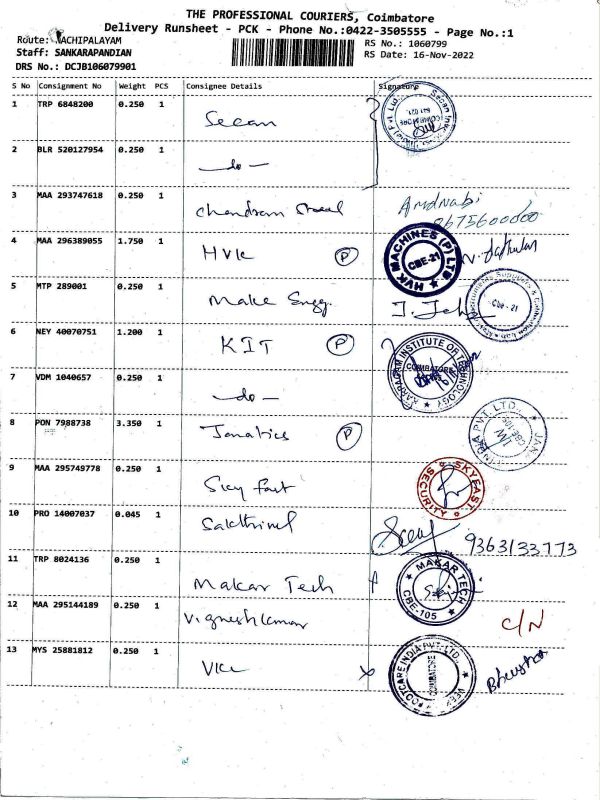 THE PROFESSIONAL COURIERS, Coimbatore
Delivery Runsheet - PCK - Phone No.:0422-3505555 - Page No.:1
Route: ACHIPALAYAM
RS No.: 1060799
Staff: SANKARAPANDIAN
RS Date: 16-Nov-2022
DRS No.: DCJB106079901
S No Consignment No Weight PCS Consignee Details Signature
1 TRP 6848200 0.250 1 Secan
2 BLR 520127954 0.250 1 -do-
3 MAA 293747618 0.250 1 Chandram
8675600000
4 MAA 296389055 1.750 1 HVK P
HVK MACHINES (P) LTD
CBE-21
5 MTP 289001 0.250 1 Make Engg.
CBE-21
6 NEY 40070751 1.200 1 KIT P
KARPAGAM INSTITUTE OF TECHNOLOGY
COIMBATORE
7 VDM 1040657 0.250 1 -do-
8 PON 7988738 3.350 1 Janatics P
PVT. LTD.
CBE-105
9 MAA 295749778 0.250 1 Sky fast
SKYEAST
SECURITY
10 PRO 14007037 0.045 1 9363133773
11 TRP 8024136 0.250 1 Makar Tech
MAKAR TECH
CBE-105
12 MAA 295144189 0.250 1 Vigneshkumar C/N
13 MYS 25881812 0.250 1
FOOTCARE INDIA PVT. LTD.
COIMBATORE